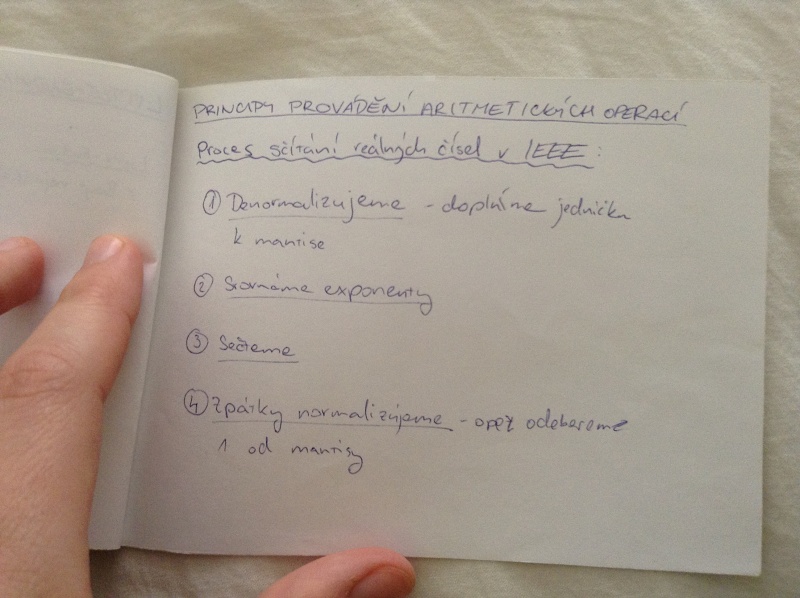 PRINCIPY PROVÁDĚNÍ ARITMETICKÝCH OPERACÍ
Proces sčítání reálných čísel v IEEE:
① Denormalizujeme - doplníme jedničku
k mantise
② Srovnáme exponenty
③ Sečteme
④ Zpátky normalizujeme - opět odebereme
1 od mantisy